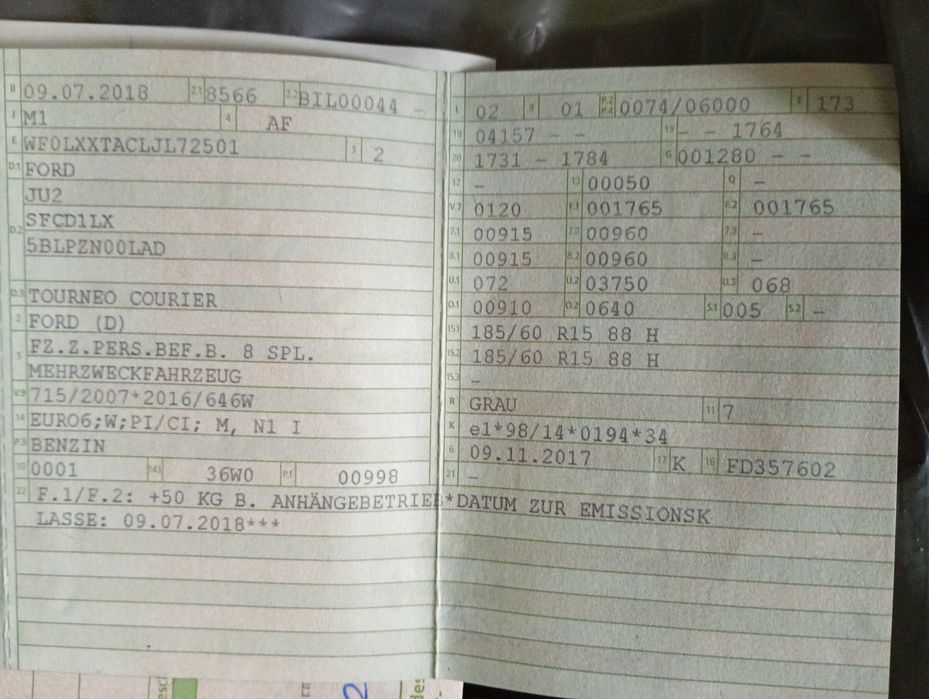 B 09.07.2018 2.1 8566 2.2 BIL00044 -
J M1 4 AF
E WF0LXXTACLJL72501 3 2
D.1 FORD
JU2
D.2 SFCD1LX
5BLPZN00LAD
D.3 TOURNEO COURIER
2 FORD (D)
5 FZ.Z.PERS.BEF.B. 8 SPL.
MEHRZWECKFAHRZEUG
V.9 715/2007*2016/646W
14 EURO6;W;PI/CI; M, N1 I
P.3 BENZIN
10 0001 14.1 36W0 P.1 00998
22 F.1/F.2: +50 KG B. ANHÄNGEBETRIEB*DATUM ZUR EMISSIONSK
LASSE: 09.07.2018***
L 02 9 01 P.2 P.4 0074/06000 T 173
18 04157 - - 19 - - 1764
20 1731 - 1784 G 001280 - -
12 - 13 00050 Q -
V.7 0120 F.1 001765 F.2 001765
7.1 00915 7.2 00960 7.3 -
8.1 00915 8.2 00960 8.3 -
U.1 072 U.2 03750 U.3 068
O.1 00910 O.2 0640 S.1 005 S.2 -
15.1 185/60 R15 88 H
15.2 185/60 R15 88 H
15.3 -
R GRAU 11 7
K e1*98/14*0194*34
6 09.11.2017 17 K 16 FD357602
21 -